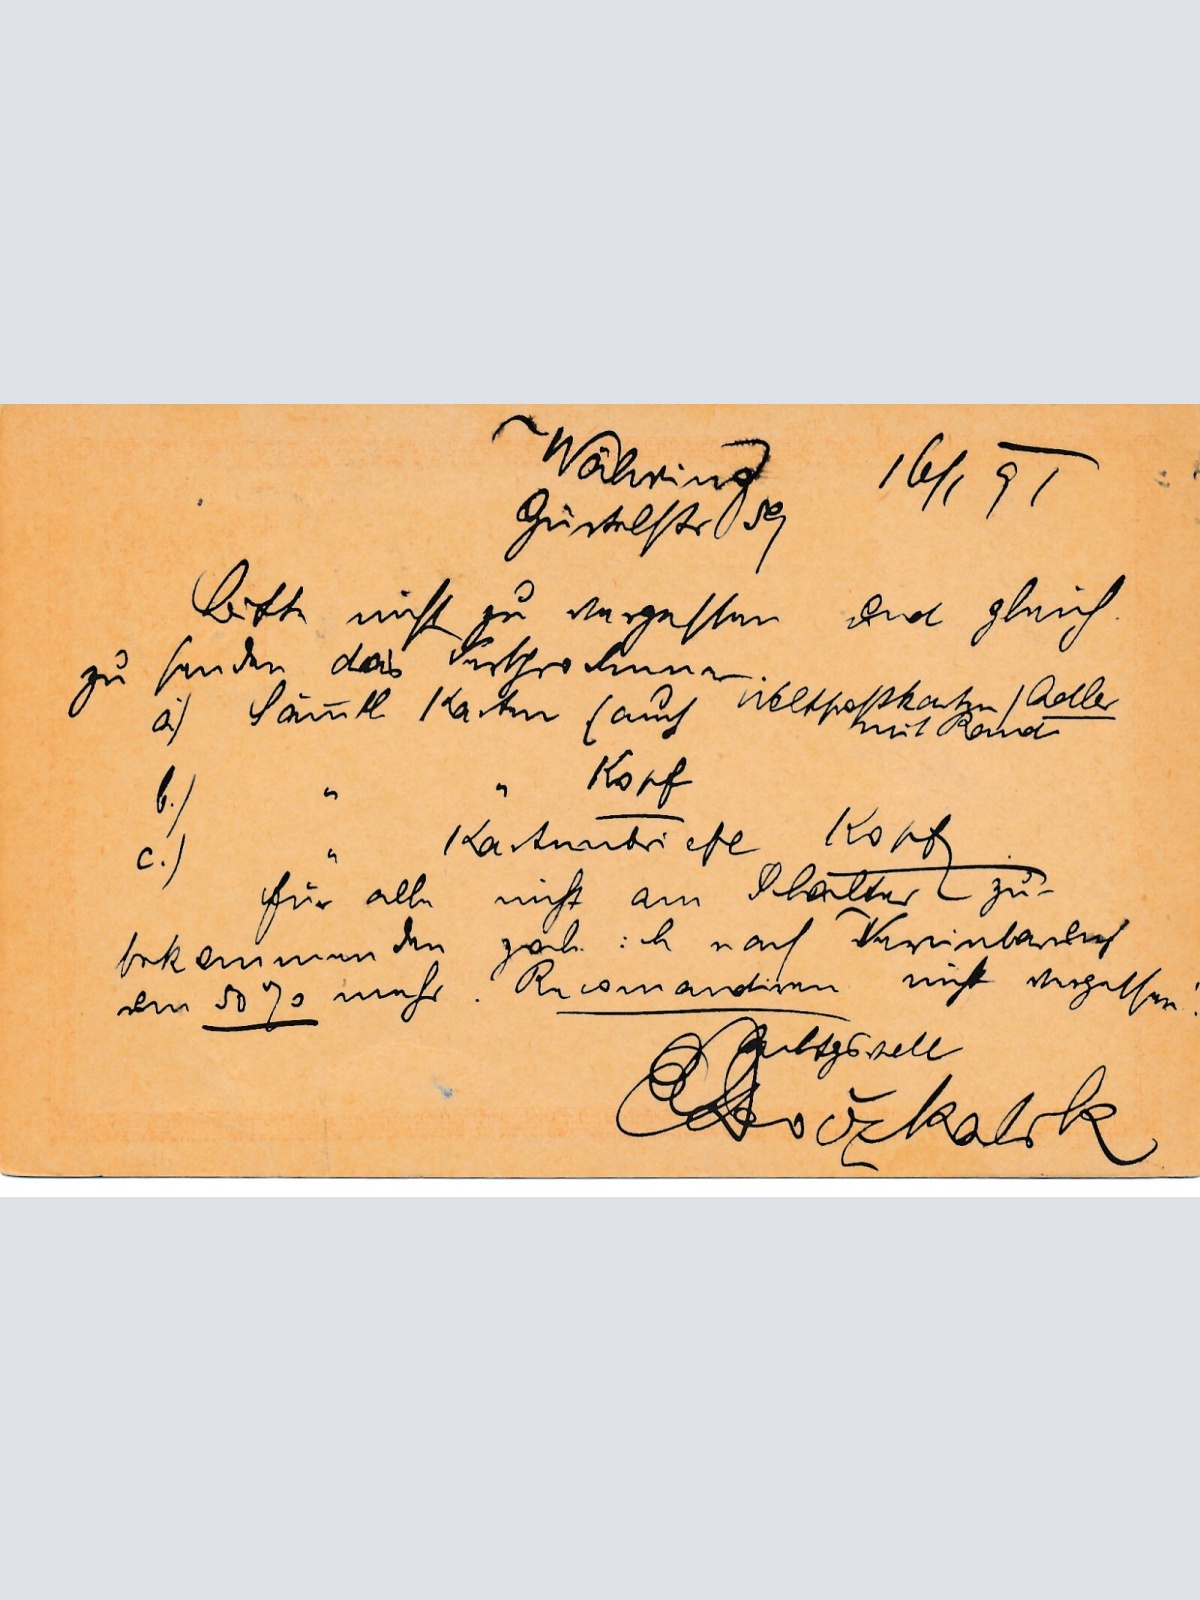 Währing 16/1 91
Gürtelstr 59
Bitte nicht zu vergessen und gleich
zu senden das
a) Sämtl Karten (auch Weltpostkarten / Adler
mit Rand
b.) " " Kopf
c.) " Kartenbriefe Kopf
für alle nicht am Schalter zu-
bekommenden zahle ich nach Vereinbarung
um 50 % mehr. Recomandiren nicht vergessen!
Achtgsvoll